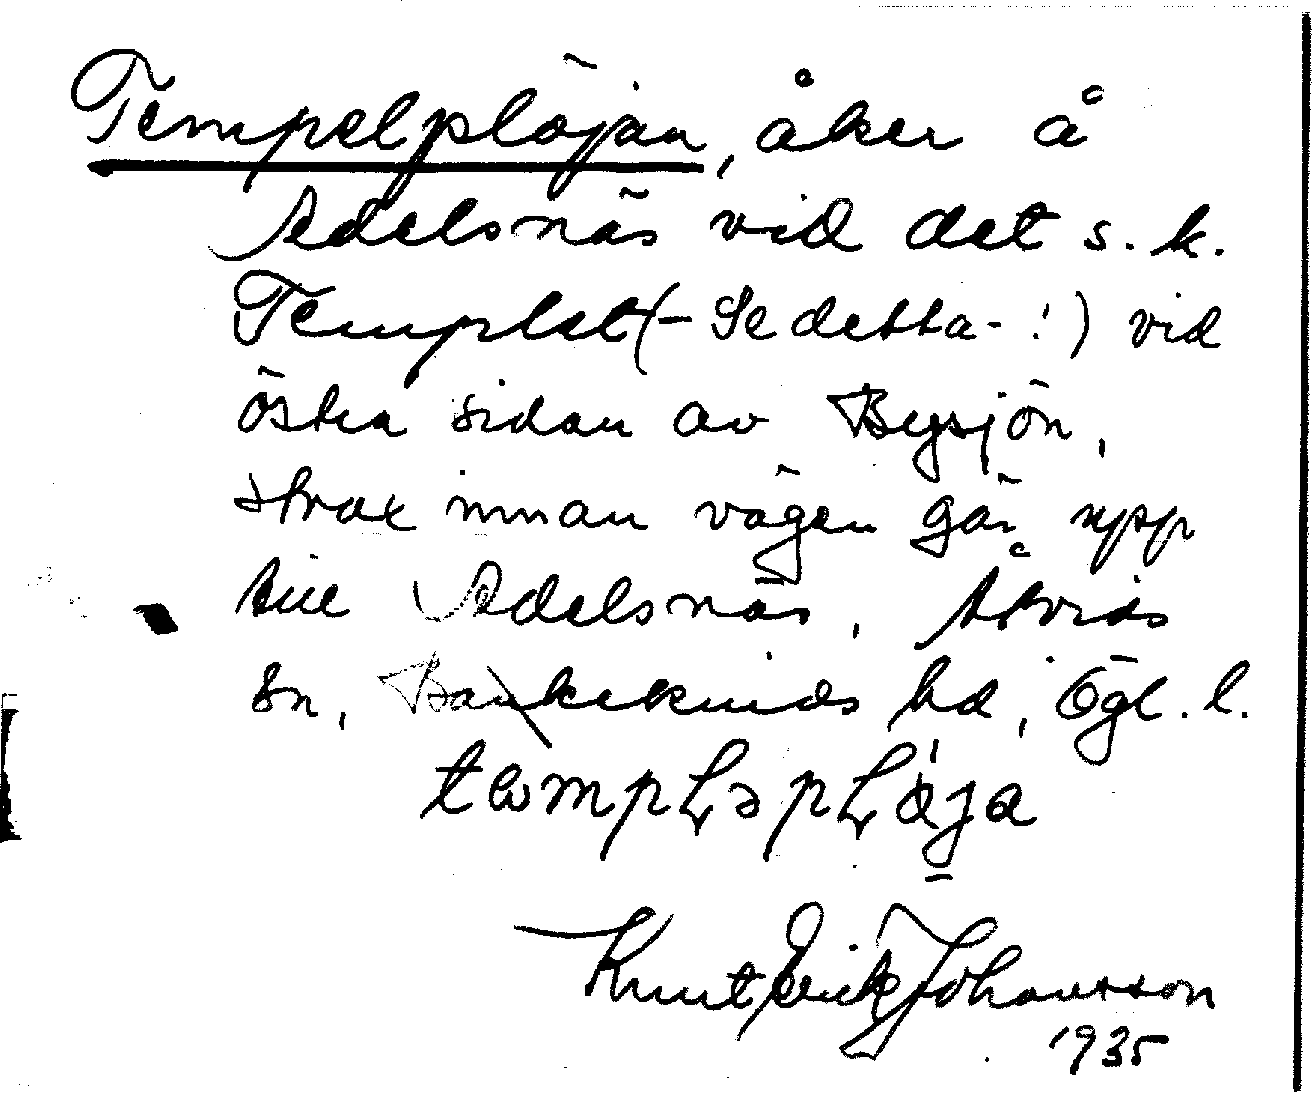 Tempelplöjan, åker å
Adelsnäs vid det s. k.
Templet (- Se detta - !) vid
östra sidan av Bysjön,
strax innan vägen går upp
till Adelsnäs, Åtvids
sn, Bankekinds hd, Ögl. l.
Knut Erik Johansson
1935